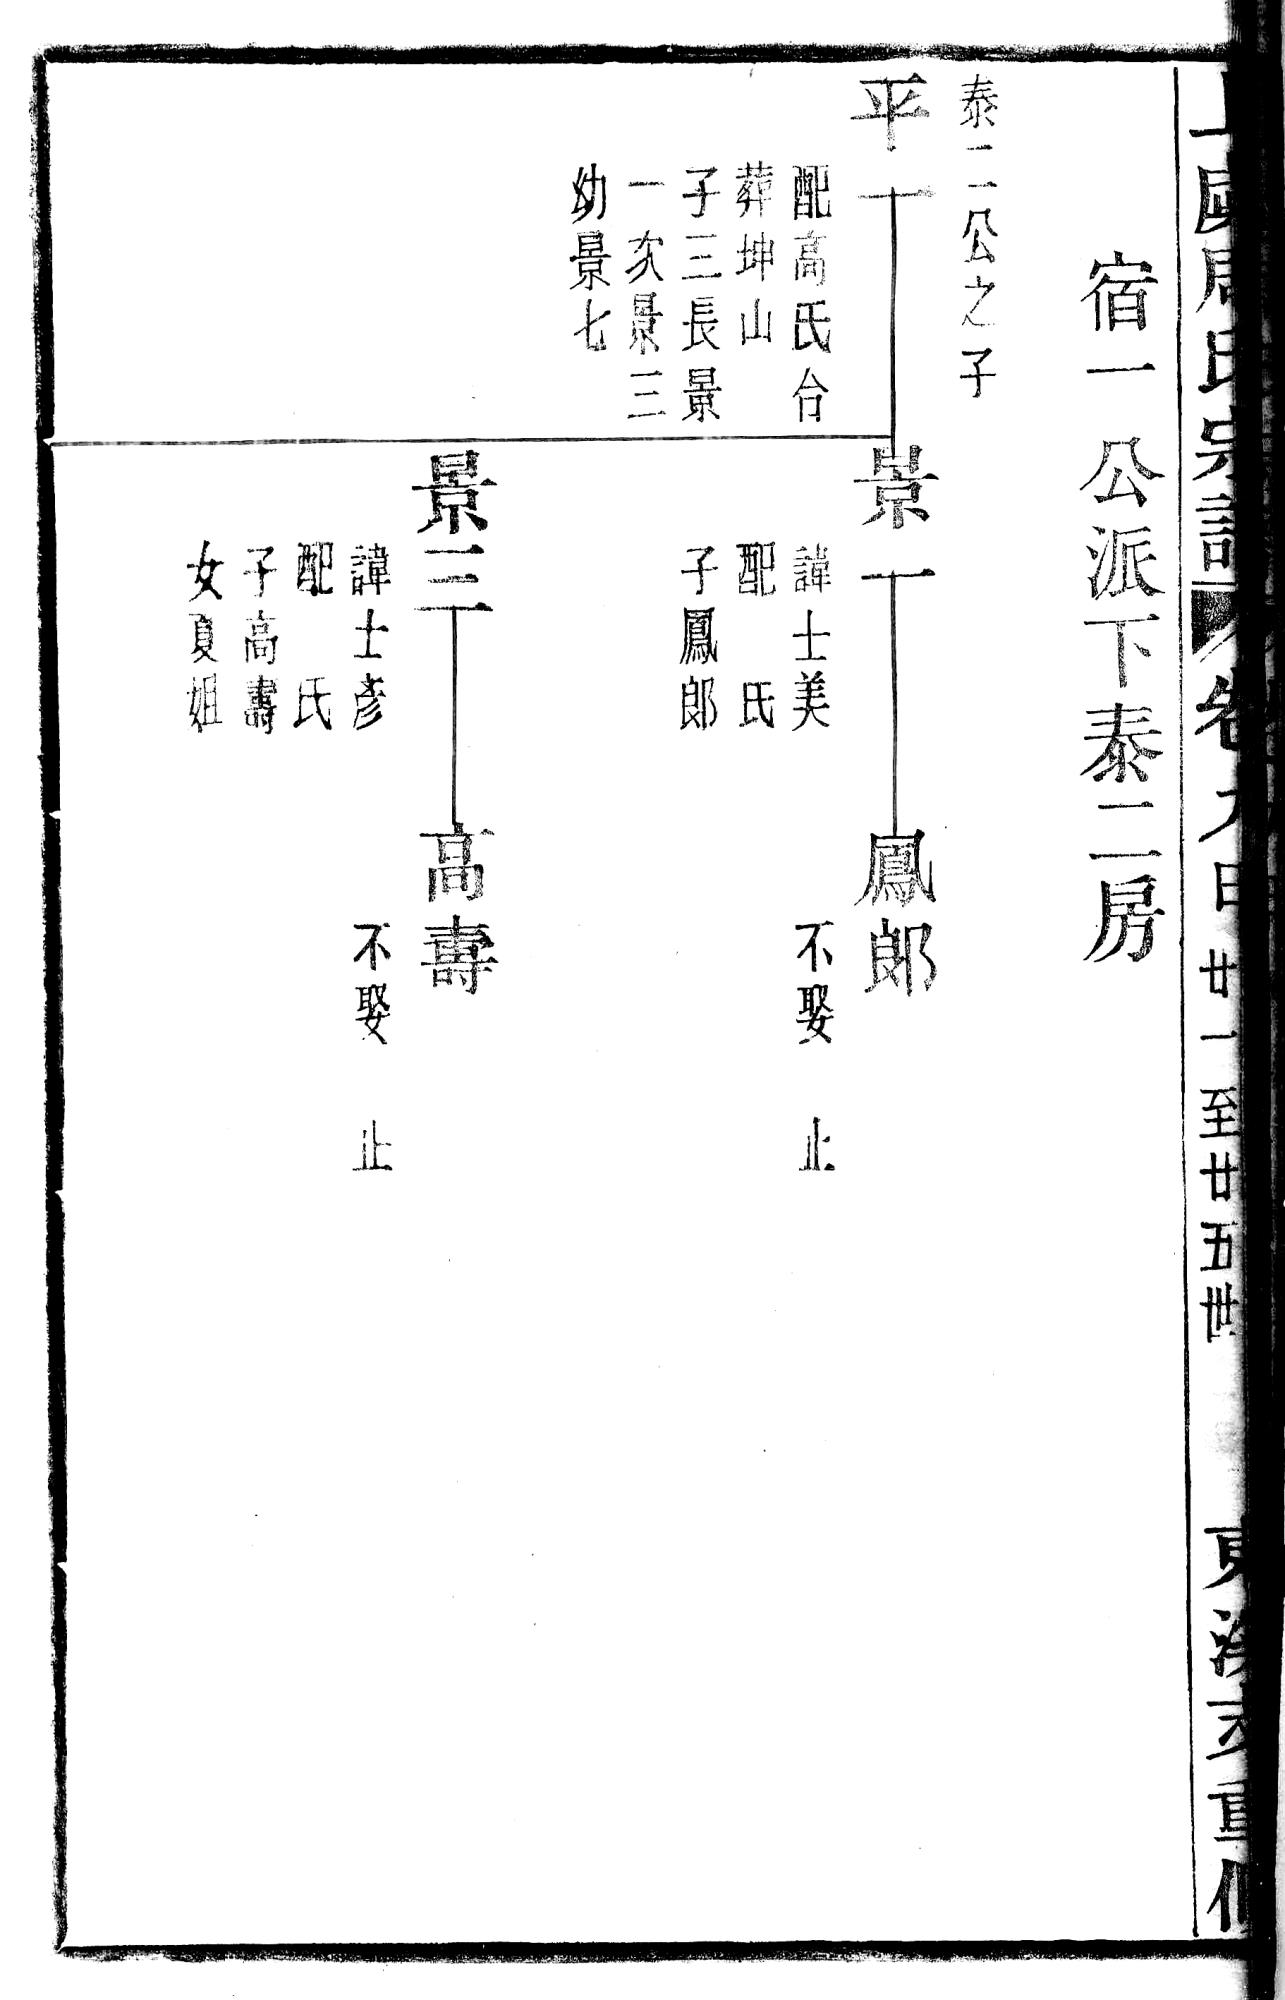 周氏宗譜
廿一至廿五世
宿一公派下泰二房
泰二公之子
平一
配高氏合
葬坤山
子三長景
一次景三
幼景七
景一
諱士美
配　氏
子鳳郎
鳳郎
不娶　止
景三
諱士彥
配　氏
子高壽
女夏姐
高壽
不娶　止